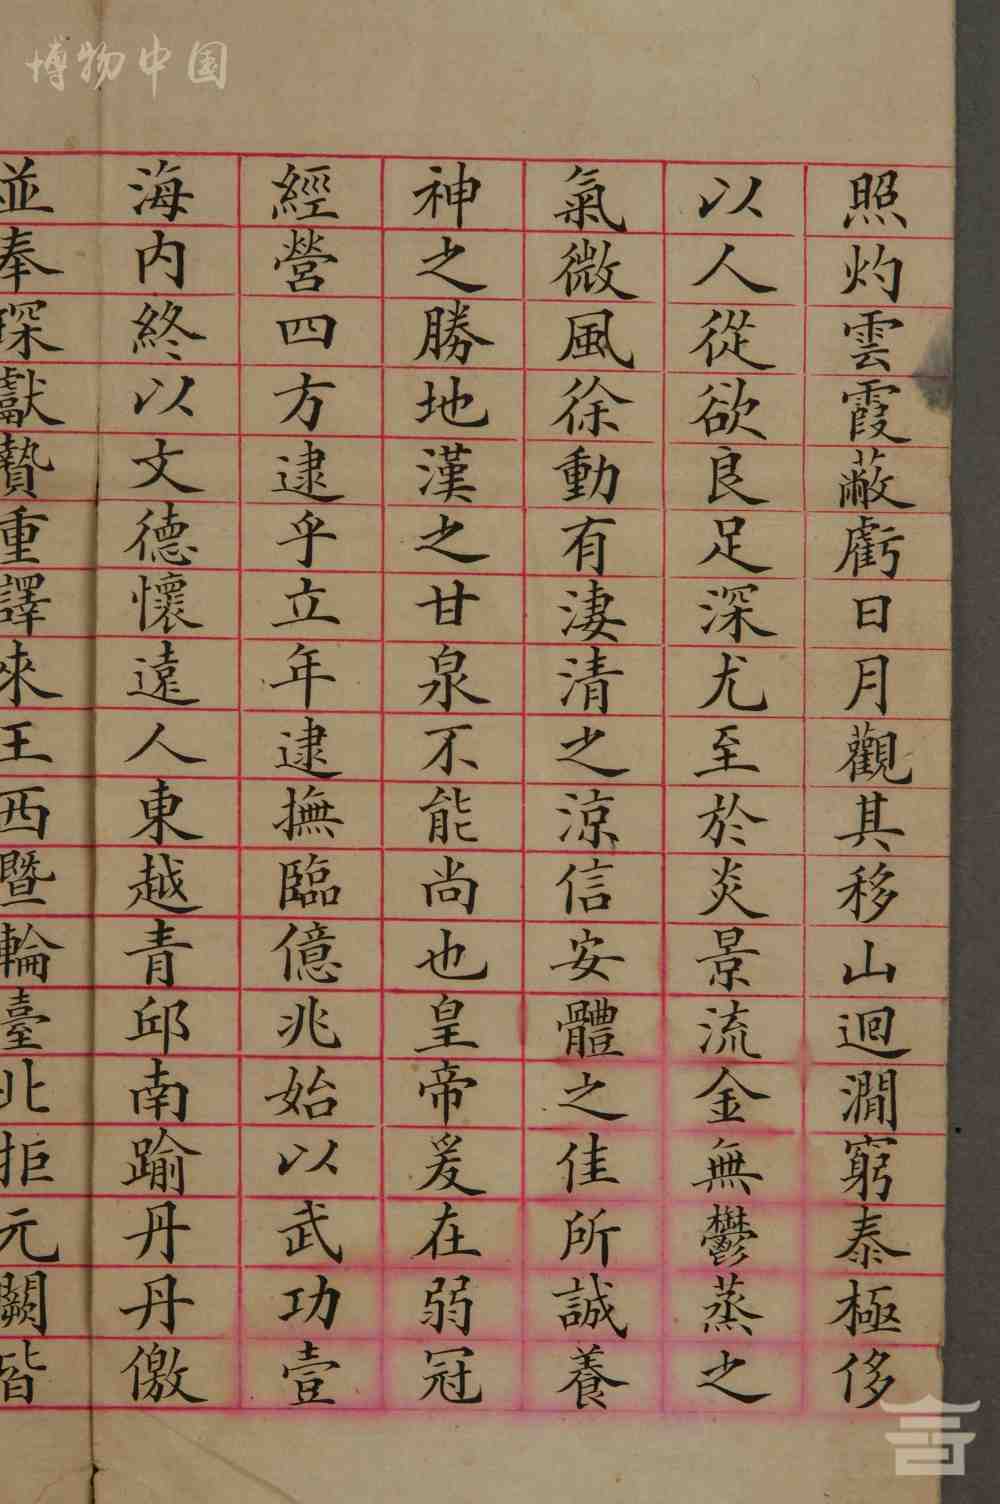 博物中国
照灼雲霞蔽虧日月觀其移山迴澗窮泰極侈
以人從欲良足深尤至於炎景流金無鬱蒸之
氣微風徐動有淒清之涼信安體之佳所誠養
神之勝地漢之甘泉不能尚也皇帝爰在弱冠
經營四方逮乎立年逮撫臨億兆始以武功壹
海内終以文德懷遠人東越青邱南踰丹丹儌
並奉琛獻贄重譯來王西暨輪臺北拒元闕皆